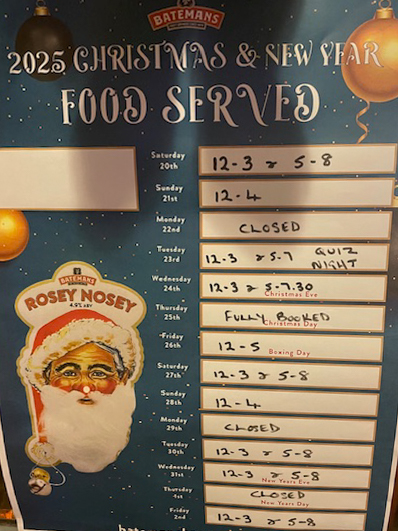 BATEMANS
2025 CHRISTMAS & NEW YEAR
FOOD SERVED
Saturday 20th 12-3 & 5-8
Sunday 21st 12-4
Monday 22nd CLOSED
Tuesday 23rd 12-3 & 5-7 QUIZ NIGHT
Wednesday 24th 12-3 & 5-7.30 Christmas Eve
Thursday 25th FULLY BOOKED Christmas Day
Friday 26th 12-5 Boxing Day
Saturday 27th 12-3 & 5-8
Sunday 28th 12-4
Monday 29th CLOSED
Tuesday 30th 12-3 & 5-8
Wednesday 31st 12-3 & 5-8 New Years Eve
Thursday 1st CLOSED New Years Day
Friday 2nd 12-3 & 5-8
BATEMANS
ROSEY NOSEY
4.9% ABV